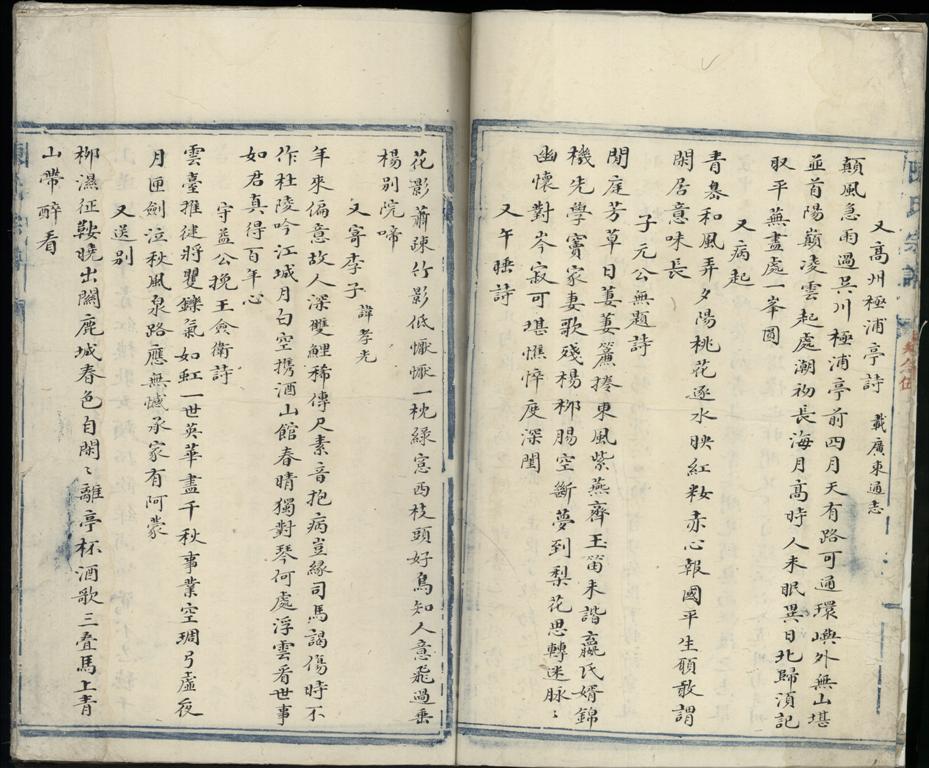 又高州極浦亭詩 載廣東通志
顛風急雨過吳川極浦亭前四月天有路可通環嶼外無山堪
並首陽巔凌雲起處潮初長海月高時人未眠異日北歸須記
取平蕪盡處一峯圓
又病起
青皋和風弄夕陽桃花逐水映紅粧赤心報國平生願敢謂
閑居意味長
子元公無題詩
閒庭芳草日萋萋簾捲東風紫燕齊玉笛未諧嬴氏婿錦
機先學竇家妻歌殘楊柳腸空斷夢到梨花思轉迷脉〻
幽懷對岑寂可堪憔悴度深閨
又午睡詩
花影蕭疎竹影低懨懨一枕綠窗西枝頭好鳥知人意飛過垂
楊別院啼
又寄李子 諱孝光
年來偏意故人深雙鯉稀傳尺素音抱病豈緣司馬謁傷時不
作杜陵吟江城月白空携酒山館春晴獨對琴何處浮雲看世事
如君真得百年心
守益公挽王僉衛詩
雲臺推徤將矍鑠氣如虹一世英華盡千秋事業空琱弓虛夜
月匣劍泣秋風泉路應無憾承家有阿蒙
又送別
柳濕征鞍曉出關鹿城春色自閑〻離亭杯酒歌三疊馬上青
山帶醉看